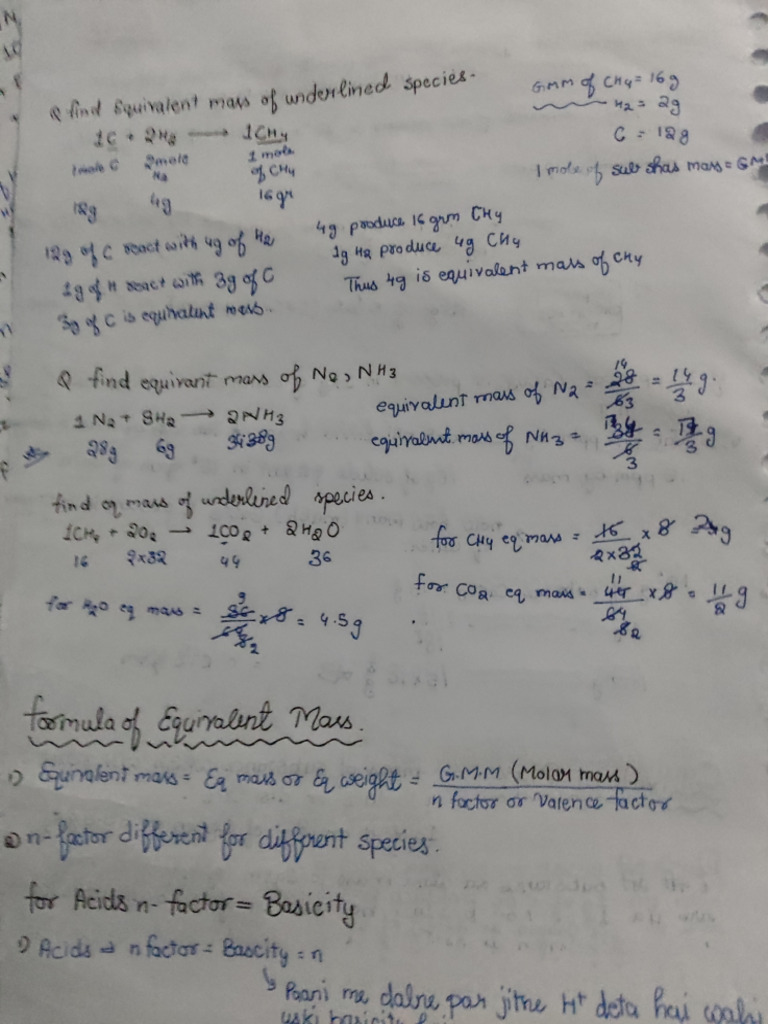 Q find Equivalent mass of underlined species.
1C + 2H2 ⟶ 1CH4
1mole C 2mole H2 1 mole of CH4
12g 4g 16gr
GMM of CH4 = 16g
H2 = 2g
C = 12g
1 mole of sub shas mass = GM
12g of C react with 4g of H2
1g of H react with 3g of C
3g of C is equivalent mass.
4g produce 16 grm CH4
1g H2 produce 4g CH4
Thus 4g is equivalent mass of CH4
Q find equivant mass of N2, NH3
1 N2 + 3H2 ⟶ 2NH3
28g 6g 34g
equivalent mass of N2 = 28/6 = 14/3 g.
equivalent mass of NH3 = 34/6 = 17/3 g
find eq mass of underlined species.
1CH4 + 2O2 → 1CO2 + 2H2O
16 2x32 44 36
for CH4 eq mass = 16/2x32 x 8 = 2g
for H2O eq mass = 36/64 x 8 = 4.5g
for CO2 eq mass = 44/64 x 8 = 11/2 g
formula of Equivalent Mass.
1) Equivalent mass = Eq mass or Eq weight = G.M.M (Molar mass)/n factor or Valence factor
2) n-factor different for different species.
for Acids n-factor = Basicity
1) Acids ⇒ n factor = Bascity = n
↳ Paani me dalne par jitne H+ deta hai wahi
uski basicity